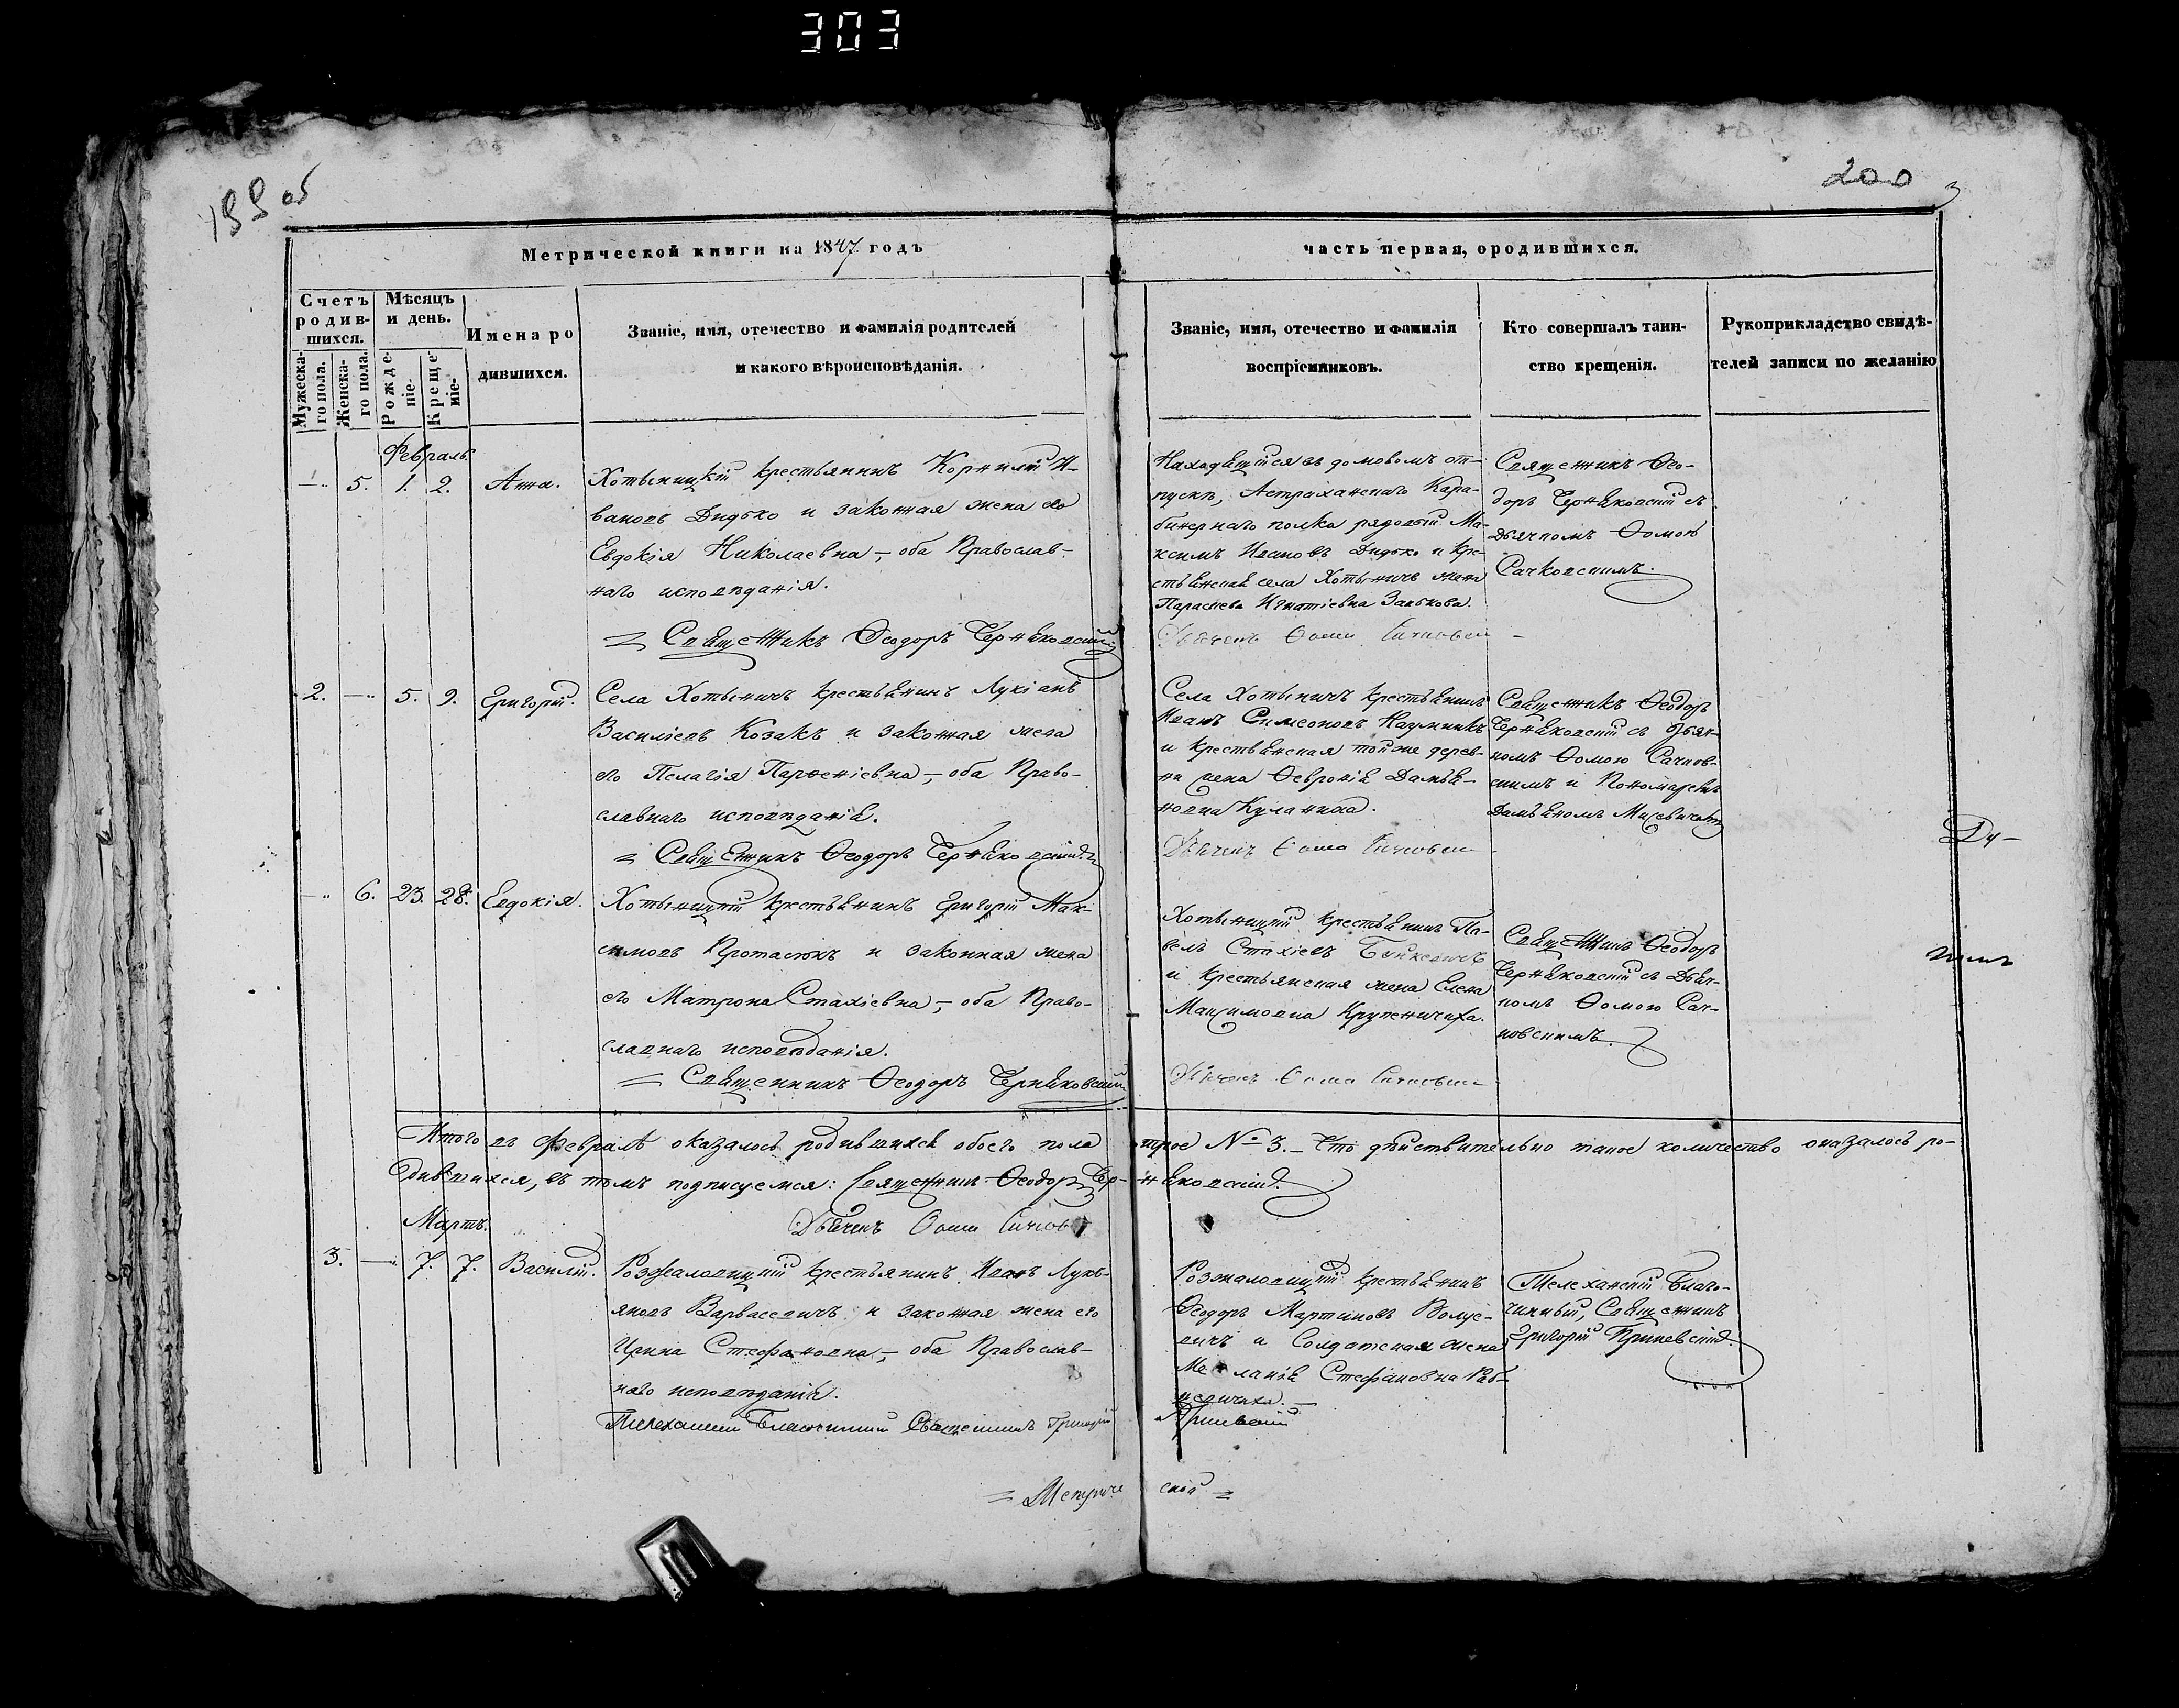 303
199 об
200
Метрической книги на 1847 годъ
часть первая, о родившихся.
Счетъ родив-шихся.
Мужеска-го пола.
Женска-го пола.
Мѣсяцъ и день.
Рожде-ніе.
Креще-ніе.
Имена ро
дившихся.
Званіе, имя, отечество и фамилія родителей
и какого вѣроисповѣданія.
Званіе, имя, отечество и фамилія
воспріемниковъ.
Кто совершалъ таин-
ство крещенія.
Рукоприкладство свидѣ-
телей записи по желанію
Февраль.
5. 1. 2. Анна.
Хотыницкій крестьянинъ Корнилій И-
вановъ Дидько и законная жена его
Евдокія Николаевна, – оба Православ-
наго исповѣданія.
Священникъ Ѳеодоръ Черняковскій
Находящійся въ домовомъ от-
пускѣ, Астраханскаго Кара-
бинернаго полка рядовый Ма-
ксимъ Ивановъ Дидько и кре-
стьянская села Хотыничъ жена
Параскева Игнатіевна Занькова.
Дьячекъ Ѳома Сачковскій
Священникъ Ѳео-
доръ Черняковскій съ
Дьячкомъ Ѳомою
Сачковскимъ.
2. 5. 9. Григорій.
Села Хотыничъ крестьянинъ Лукіанъ
Василіевъ Козакъ и законная жена
его Пелагія Парѳеніевна, – оба Право-
славнаго исповѣданія.
Священникъ Ѳеодоръ Черняковскій
Села Хотыничъ крестьянинъ
Иванъ Симеоновъ Наумчикъ
и крестьянская тойже дерев-
ни жена Ѳевронія Дамья-
новна Куланина.
Дьячекъ Ѳома Сачковскій
Священникъ Ѳеодоръ
Черняковскій съ Дьяч-
комъ Ѳомою Сачков-
скимъ и Пономаремъ
Дамьяномъ Мицевичемъ
6. 23. 28. Евдокія.
Хотыницкій крестьянинъ Григорій Мак-
симовъ Протасюкъ и законная жена
его Матрона Стахіевна, – оба Право-
славнаго исповѣданія.
Священникъ Ѳеодоръ Черняковскій
Хотыницкій крестьянинъ Па-
велъ Стахіевъ
и крестьянская жена Елена
Максимовна Крупеничиха.
Дьячекъ Ѳома Сачковскій
Священникъ Ѳеодоръ
Черняковскій съ Дьяч-
комъ Ѳомою Сач-
ковскимъ.
Итого въ Февралѣ оказалось родившихся обоего пола трое № 3. – Что дѣйствительно такое количество оказалось ро-
дившихся, въ томъ подписуемся: Священникъ Ѳеодоръ Черняковскій.
Дьячекъ Ѳома Сачков
Мартъ.
3. 7. 7. Василій.
Розжаловицкій крестьянинъ Иванъ Лукь-
яновъ Варвасевичъ и законная жена его
Ирина Стефановна, – оба Православ-
наго исповѣданія.
Телеханскій Благочинный Священникъ Григорій
Розжаловицкій крестьянинъ
Ѳеодоръ Мартиновъ Волусе-
вичъ и Солдатская жена
Меланія Стефановна Раб-
цевичиха. –
Телеханскій Благо-
чинный, Священникъ
Григорій
Метриче ской
Ду-